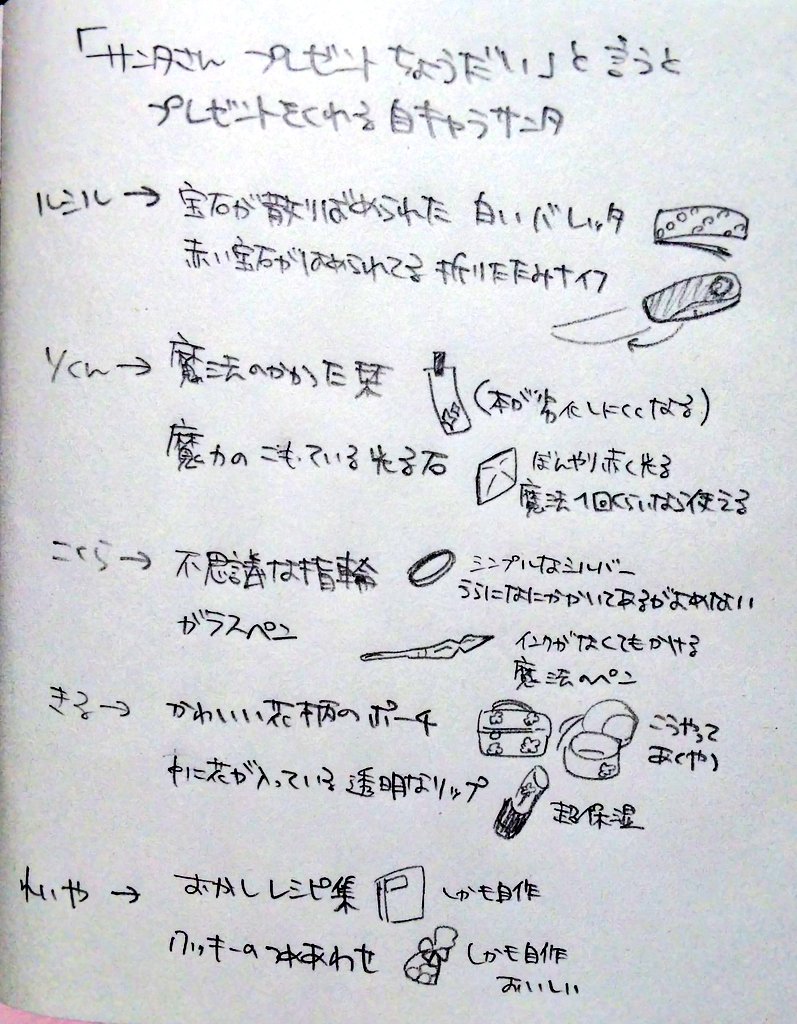 「サンタさん プレゼント ちょうだい」と言うと
プレゼントをくれる自キャラサンタ
ルミル→ 宝石が散りばめられた 白いバレッタ
赤い宝石がはめられてる 折りたたみナイフ
りくん→ 魔法のかかった栞
(本が劣化しにくくなる)
魔力の こもっている光る石
ぼんやり赤く光る
魔法1回くらいなら使える
こくら→ 不思議な指輪
シンプルなシルバー
うらになにかかいてあるがよめない
ガラスペン
インクがなくてもかける
魔法のペン
きる→ かわいい花柄のポーチ
こうやって
あくやつ
中に花が入っている透明なリップ
超保湿
れいや→ おかしレシピ集
しかも自作
クッキーのつめあわせ
しかも自作
おいしい